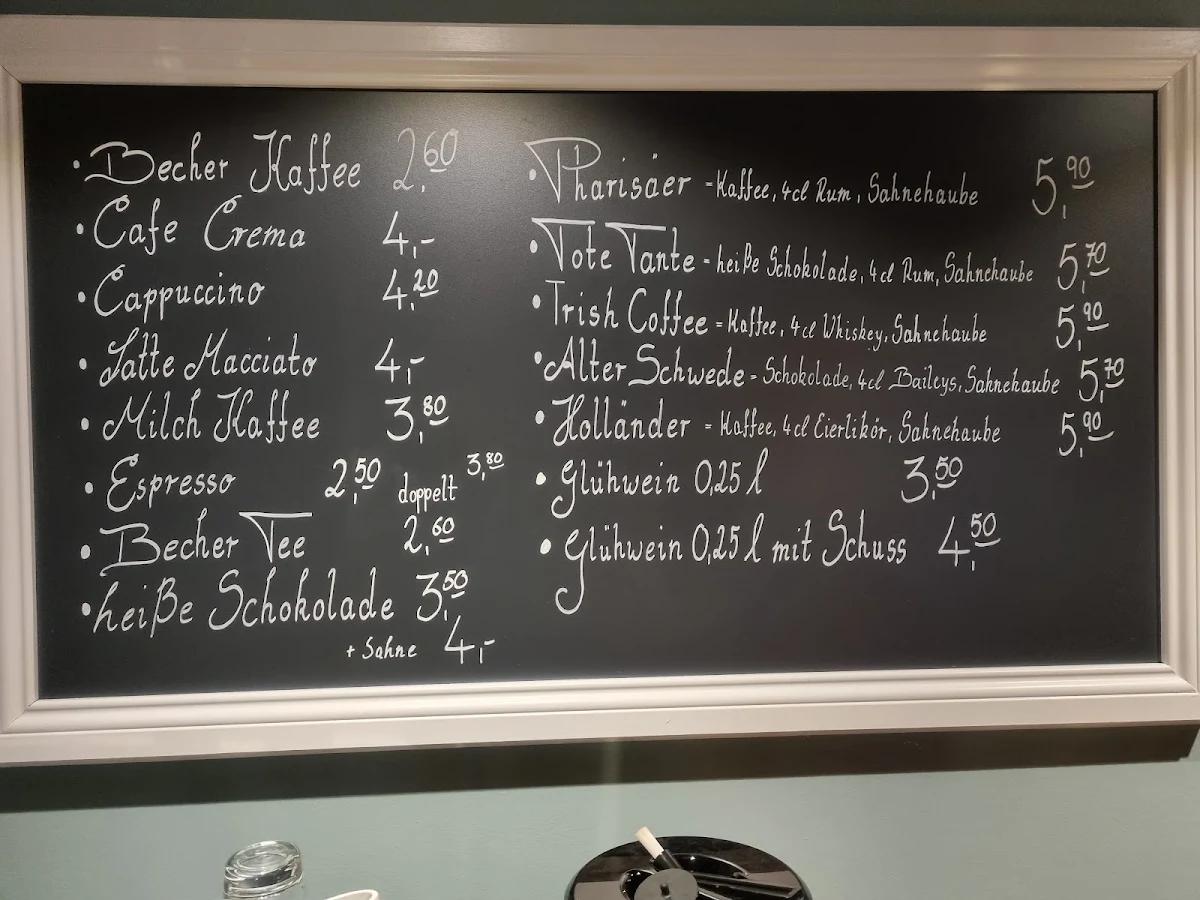 · Becher Kaffee 2,60
· Cafe Crema 4,-
· Cappuccino 4,20
· Latte Macciato 4,-
· Milch Kaffee 3,80
· Espresso 2,50 doppelt 3,80
· Becher Tee 2,60
· heiße Schokolade 3,50
+ Sahne 4,-
· Pharisäer = Kaffee, 4cl Rum, Sahnehaube 5,90
· Tote Tante = heiße Schokolade, 4cl Rum, Sahnehaube 5,70
· Irish Coffee = Kaffee, 4cl Whiskey, Sahnehaube 5,90
· Alter Schwede = Schokolade, 4cl Baileys, Sahnehaube 5,70
· Holländer = Kaffee, 4cl Eierlikör, Sahnehaube 5,90
· Glühwein 0,25 l 3,50
· Glühwein 0,25 l mit Schuss 4,50